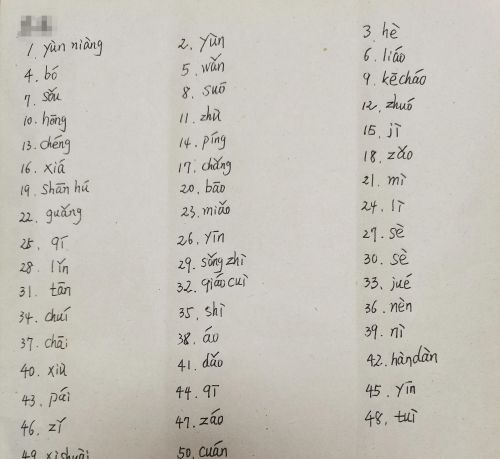 1. yùn niàng 2. yùn 3. hè
4. bó 5. wǎn 6. liáo
7. sǒu 8. suō 9. kē cháo
10. hōng 11. zhū 12. zhuó
13. chéng 14. píng 15. jì
16. xiá 17. chǎng 18. zǎo
19. shān hú 20. bāo 21. mì
22. guǎng 23. miǎo 24. lì
25. qī 26. yīn 27. sè
28. lǐn 29. sǒng zhì 30. sè
31. tān 32. qiáo cuì 33. jué
34. chuí 35. shì 36. nèn
37. chāi 38. áo 39. nì
40. xiù 41. dǎo 42. hàn dàn
43. pái 44. qī 45. yīn
46. zǐ 47. záo 48. tuì
49. xī shuài 50. cuán